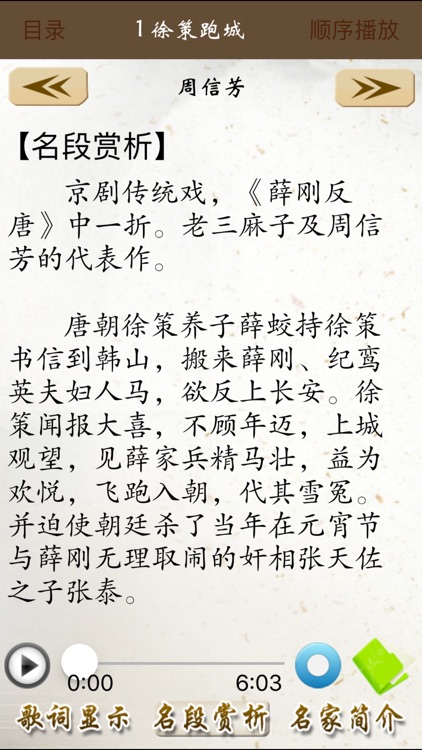 目录 1 徐策跑城 顺序播放
周信芳
【名段赏析】
京剧传统戏，《薛刚反
唐》中一折。老三麻子及周信
芳的代表作。
唐朝徐策养子薛蛟持徐策
书信到韩山，搬来薛刚、纪鸾
英夫妇人马，欲反上长安。徐
策闻报大喜，不顾年迈，上城
观望，见薛家兵精马壮，益为
欢悦，飞跑入朝，代其雪冤。
并迫使朝廷杀了当年在元宵节
与薛刚无理取闹的奸相张天佐
之子张泰。
0:00 6:03
歌词显示 名段赏析 名家简介